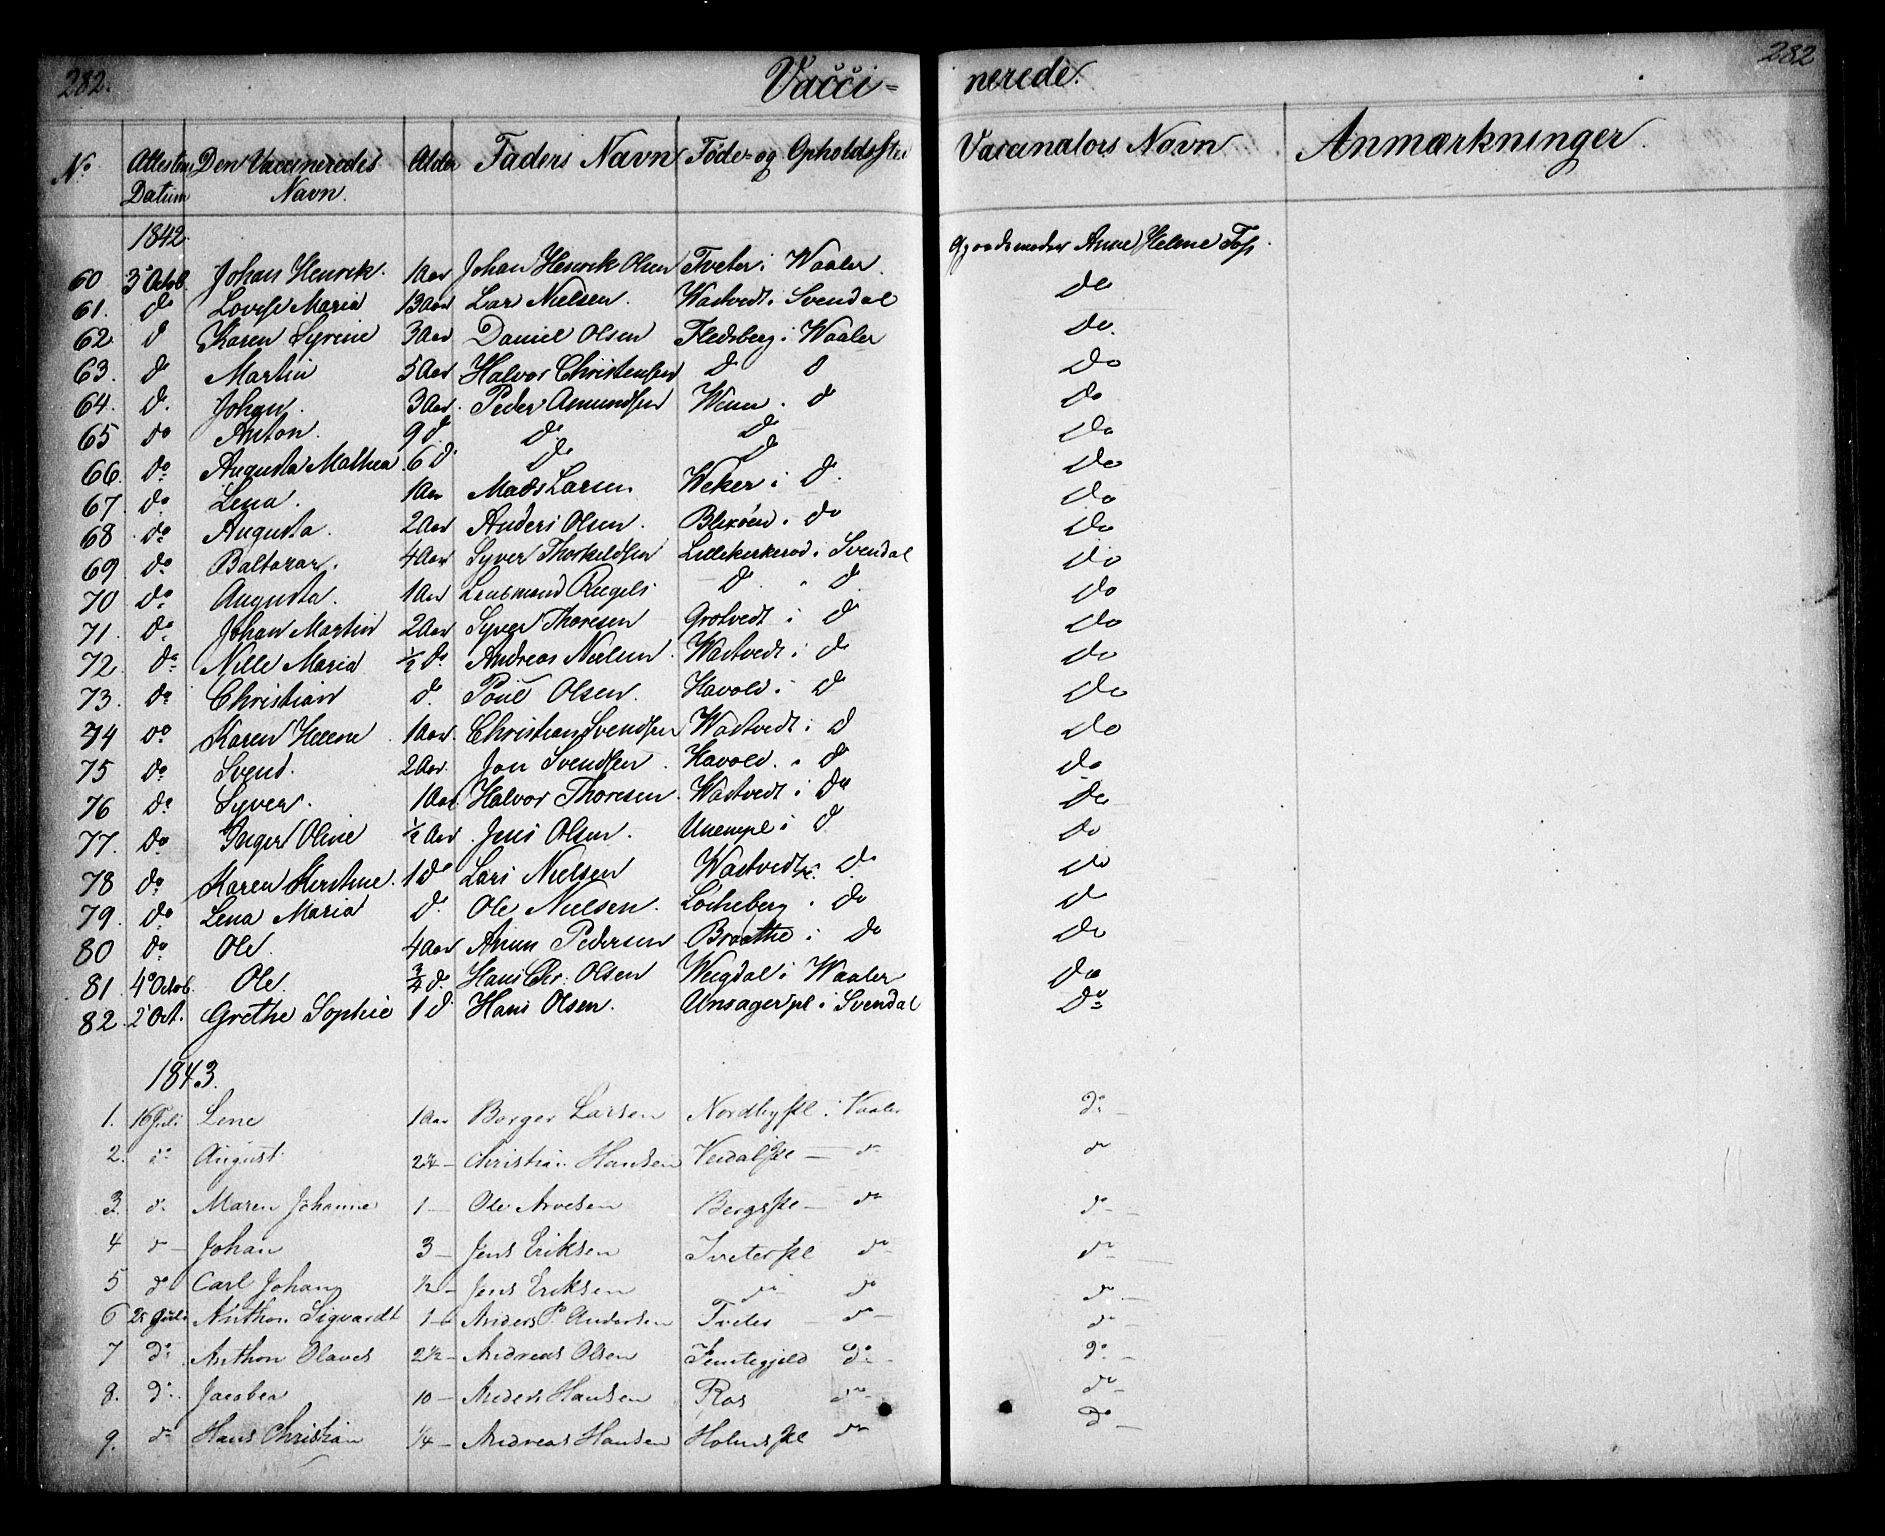 282. Vacci= nerede. 282
No. Attestens Datum Den Vaccineredes Navn. Alder Faders Navn Føde- og Opholdssted Vaccinators Navn Anmærkninger.
1842.
60 3 Octob. Johan Henrik. 1 Aar Johan Henrik Olsen Tveter i Waaler. Gjordemoder Anne Helene Foss.
61. do Lovise Maria 13 Aar Lars Nielsen. Wastvedt i Svendal do
62. d Karen Syrine 3 Aar Daniel Olsen Fledsberg i Waaler do.
63. do Martin 5 Aar Halvor Christensen d d do
64. d. Johan. 3 Aar. Peder Amundsen d do
65 do Anton. 9 d. do do do
66. do Augusta Mathea 6 d. do do do
67. do Lena. 1 Aar Mads Larsen Weker i d. do
68 do Augusta. 2 Aar Anders Olsen. Blixøen i do do
69 do Baltazar. 4 Aar Syver Thorkeldsen Lillekirkerød i Svendal do
70 do Augusta. 1 Aar d. " d. do
71. do Johan Martin 2 Aar Syver Thoresen Grotvedt i d do
72. do Nille Maria ½ do Andreas Nielsen. Wastvedt i do do
73. do Christian d. Poul Olsen. Havold i d do
74 do Karen Helene 1 Aar. Christian Svendsen Wastvedt i d do
75 do Svend. 2 Aar. Jon Svendsen. Havold. " d do
76 do Syver. 1 Aar Halvor Thoresen. Wastvedt i do do
77. do Inger Oline ½ Aar Jens Olsen. i d. do
78 do Karen Kirstine. 1 do Lars Nielsen Wastvedt i do do
79. do Lena Maria d. Ole Nielsen. Locheberg i do do
80 do Ole. 4 Aar Pedersen Braathe i do do
81. 4 Octob. Ole. ¾ d. Hans Chr. Olsen Weegdal i Waaler do
82. 2 Oct. Grethe Sophie 1 d. Hans Olsen. Unsagerpl i Svendal do
1843.
1. 16 Juli Lene 1 Aar Borger Larsen Nordbypl i Vaaler do —
2. do August. 2¼ — Christian Hansen — do do
3. do Maren Johanne 1 — Ole Arvesen Bergspl — do do —
4 do — Johan 3 — Jens Eriksen Tveterpl do do —
5 do Carl Johan ½ — Jens Eriksen do do do —
6 25 Juli Anthon Sigvardt 1 — Anders P. Andersen Tveter — do — do —
7 do Anthon Olaves 2½ — Andreas Olsen do — do —
8. do Jacobea 10 — Anders Hansen Ros do — do —
9. do Hans Christian ¼ — Andreas Hansen Holmspl do do —